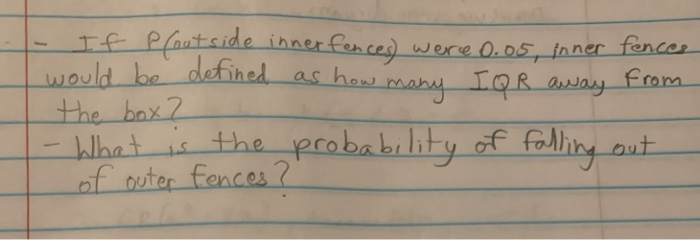 - If P(outside inner fences) were 0.05, inner fences
would be defined as how many IQR away from
the box?
- What is the probability of falling out
of outer fences?